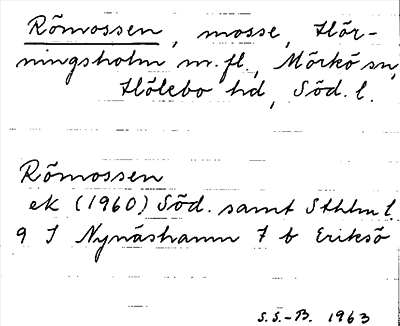 Römossen, mosse, Hör-
ningsholm m.fl., Mörkö sn,
Hölebo hd, Söd. l.
Römossen
ek (1960) Söd. samt Sthlm l.
9 I Nynäshamn 7 b Eriksö
S.S.-B. 1963